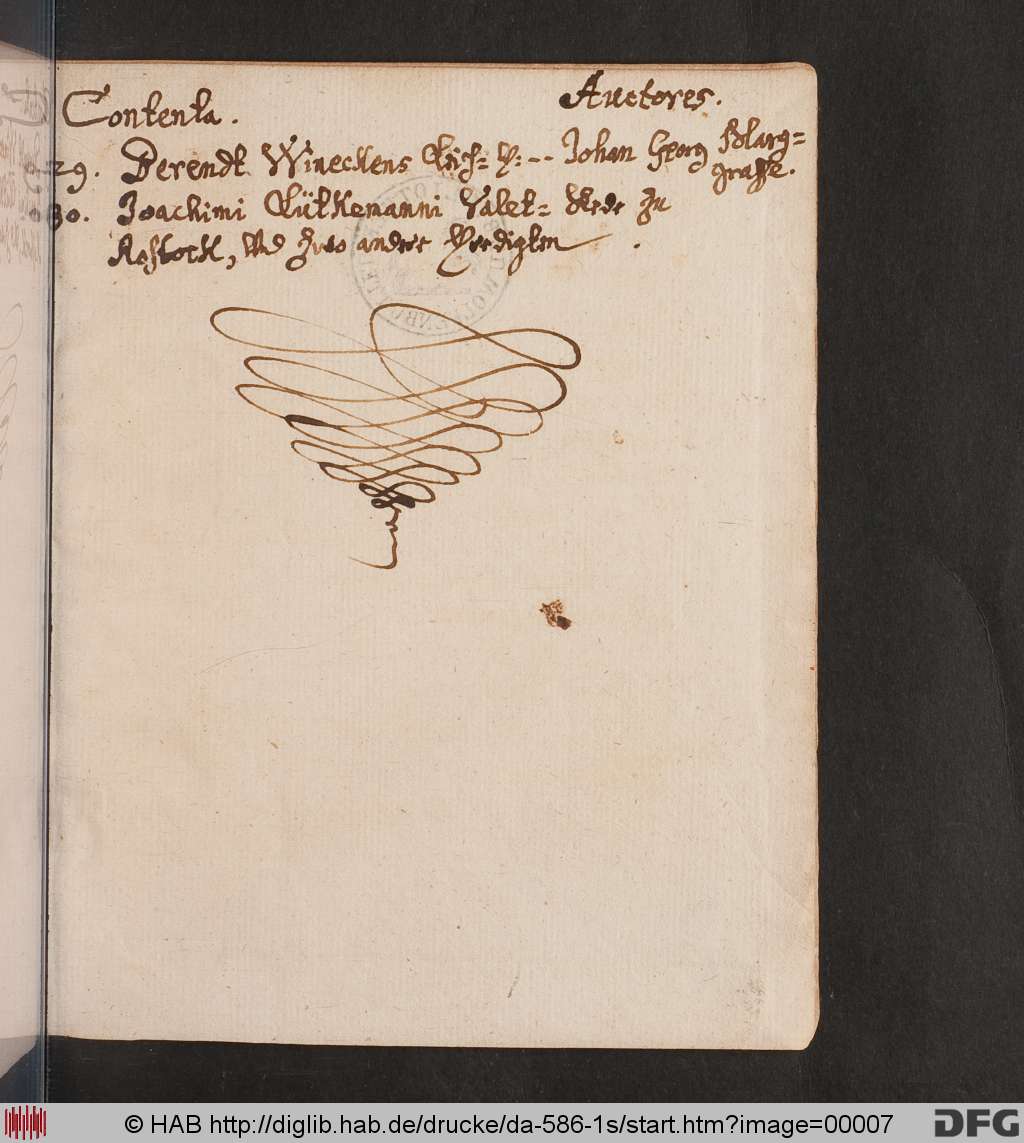 Contenta. Auctores.
29. Berendt Wineckens Leich= P: -- Johan Georg Marg=
graffe.
30. Joachimi Lütkemanni Valet= Rede zu
Rostock, Und zwo andere Predigten.
© HAB http://diglib.hab.de/drucke/da-586-1s/start.htm?image=00007
DFG